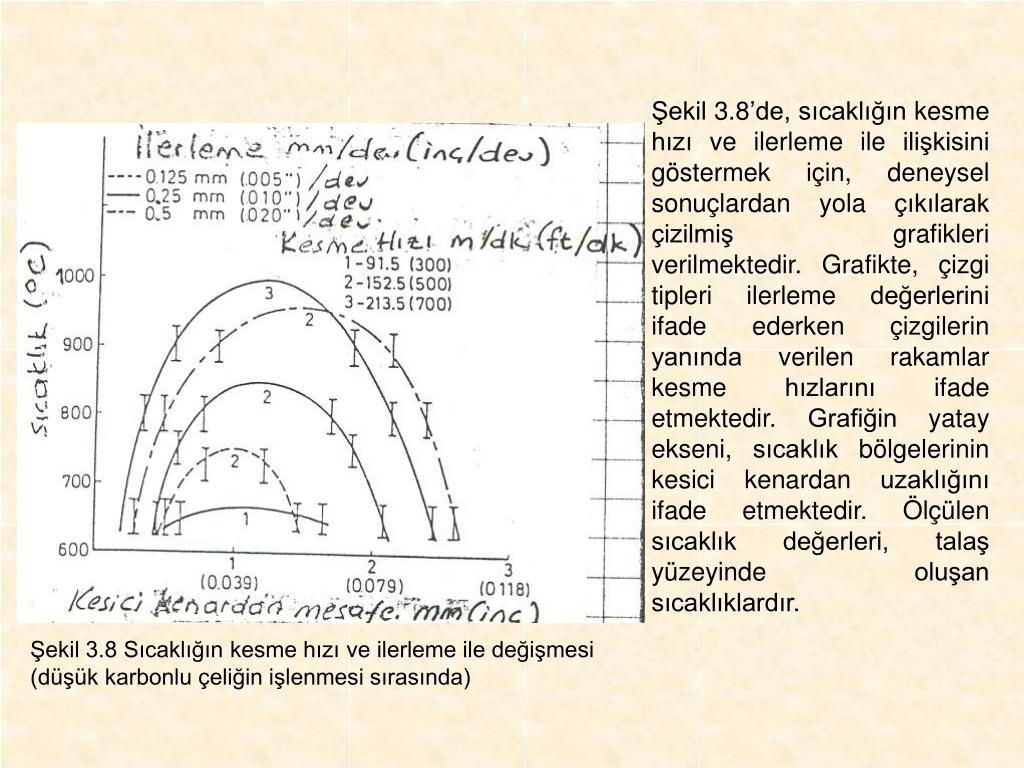 İlerleme mm/dev (inç/dev)
0.125 mm (.005") /dev
0.25 mm (.010") /dev
0.5 mm (.020") /dev.
Kesme Hızı m/dk (ft/dk)
1-91.5 (300)
2-152.5 (500)
3-213.5 (700)
Sıcaklık (°C)
1000
900
800
700
600
3
2
2
2
1
1 2 3
(0.039) (0.079) (0.118)
Kesici kenardan mesafe. mm (inç)
Şekil 3.8’de, sıcaklığın kesme
hızı ve ilerleme ile ilişkisini
göstermek için, deneysel
sonuçlardan yola çıkılarak
çizilmiş grafikleri
verilmektedir. Grafikte, çizgi
tipleri ilerleme değerlerini
ifade ederken çizgilerin
yanında verilen rakamlar
kesme hızlarını ifade
etmektedir. Grafiğin yatay
ekseni, sıcaklık bölgelerinin
kesici kenardan uzaklığını
ifade etmektedir. Ölçülen
sıcaklık değerleri, talaş
yüzeyinde oluşan
sıcaklıklardır.
Şekil 3.8 Sıcaklığın kesme hızı ve ilerleme ile değişmesi
(düşük karbonlu çeliğin işlenmesi sırasında)